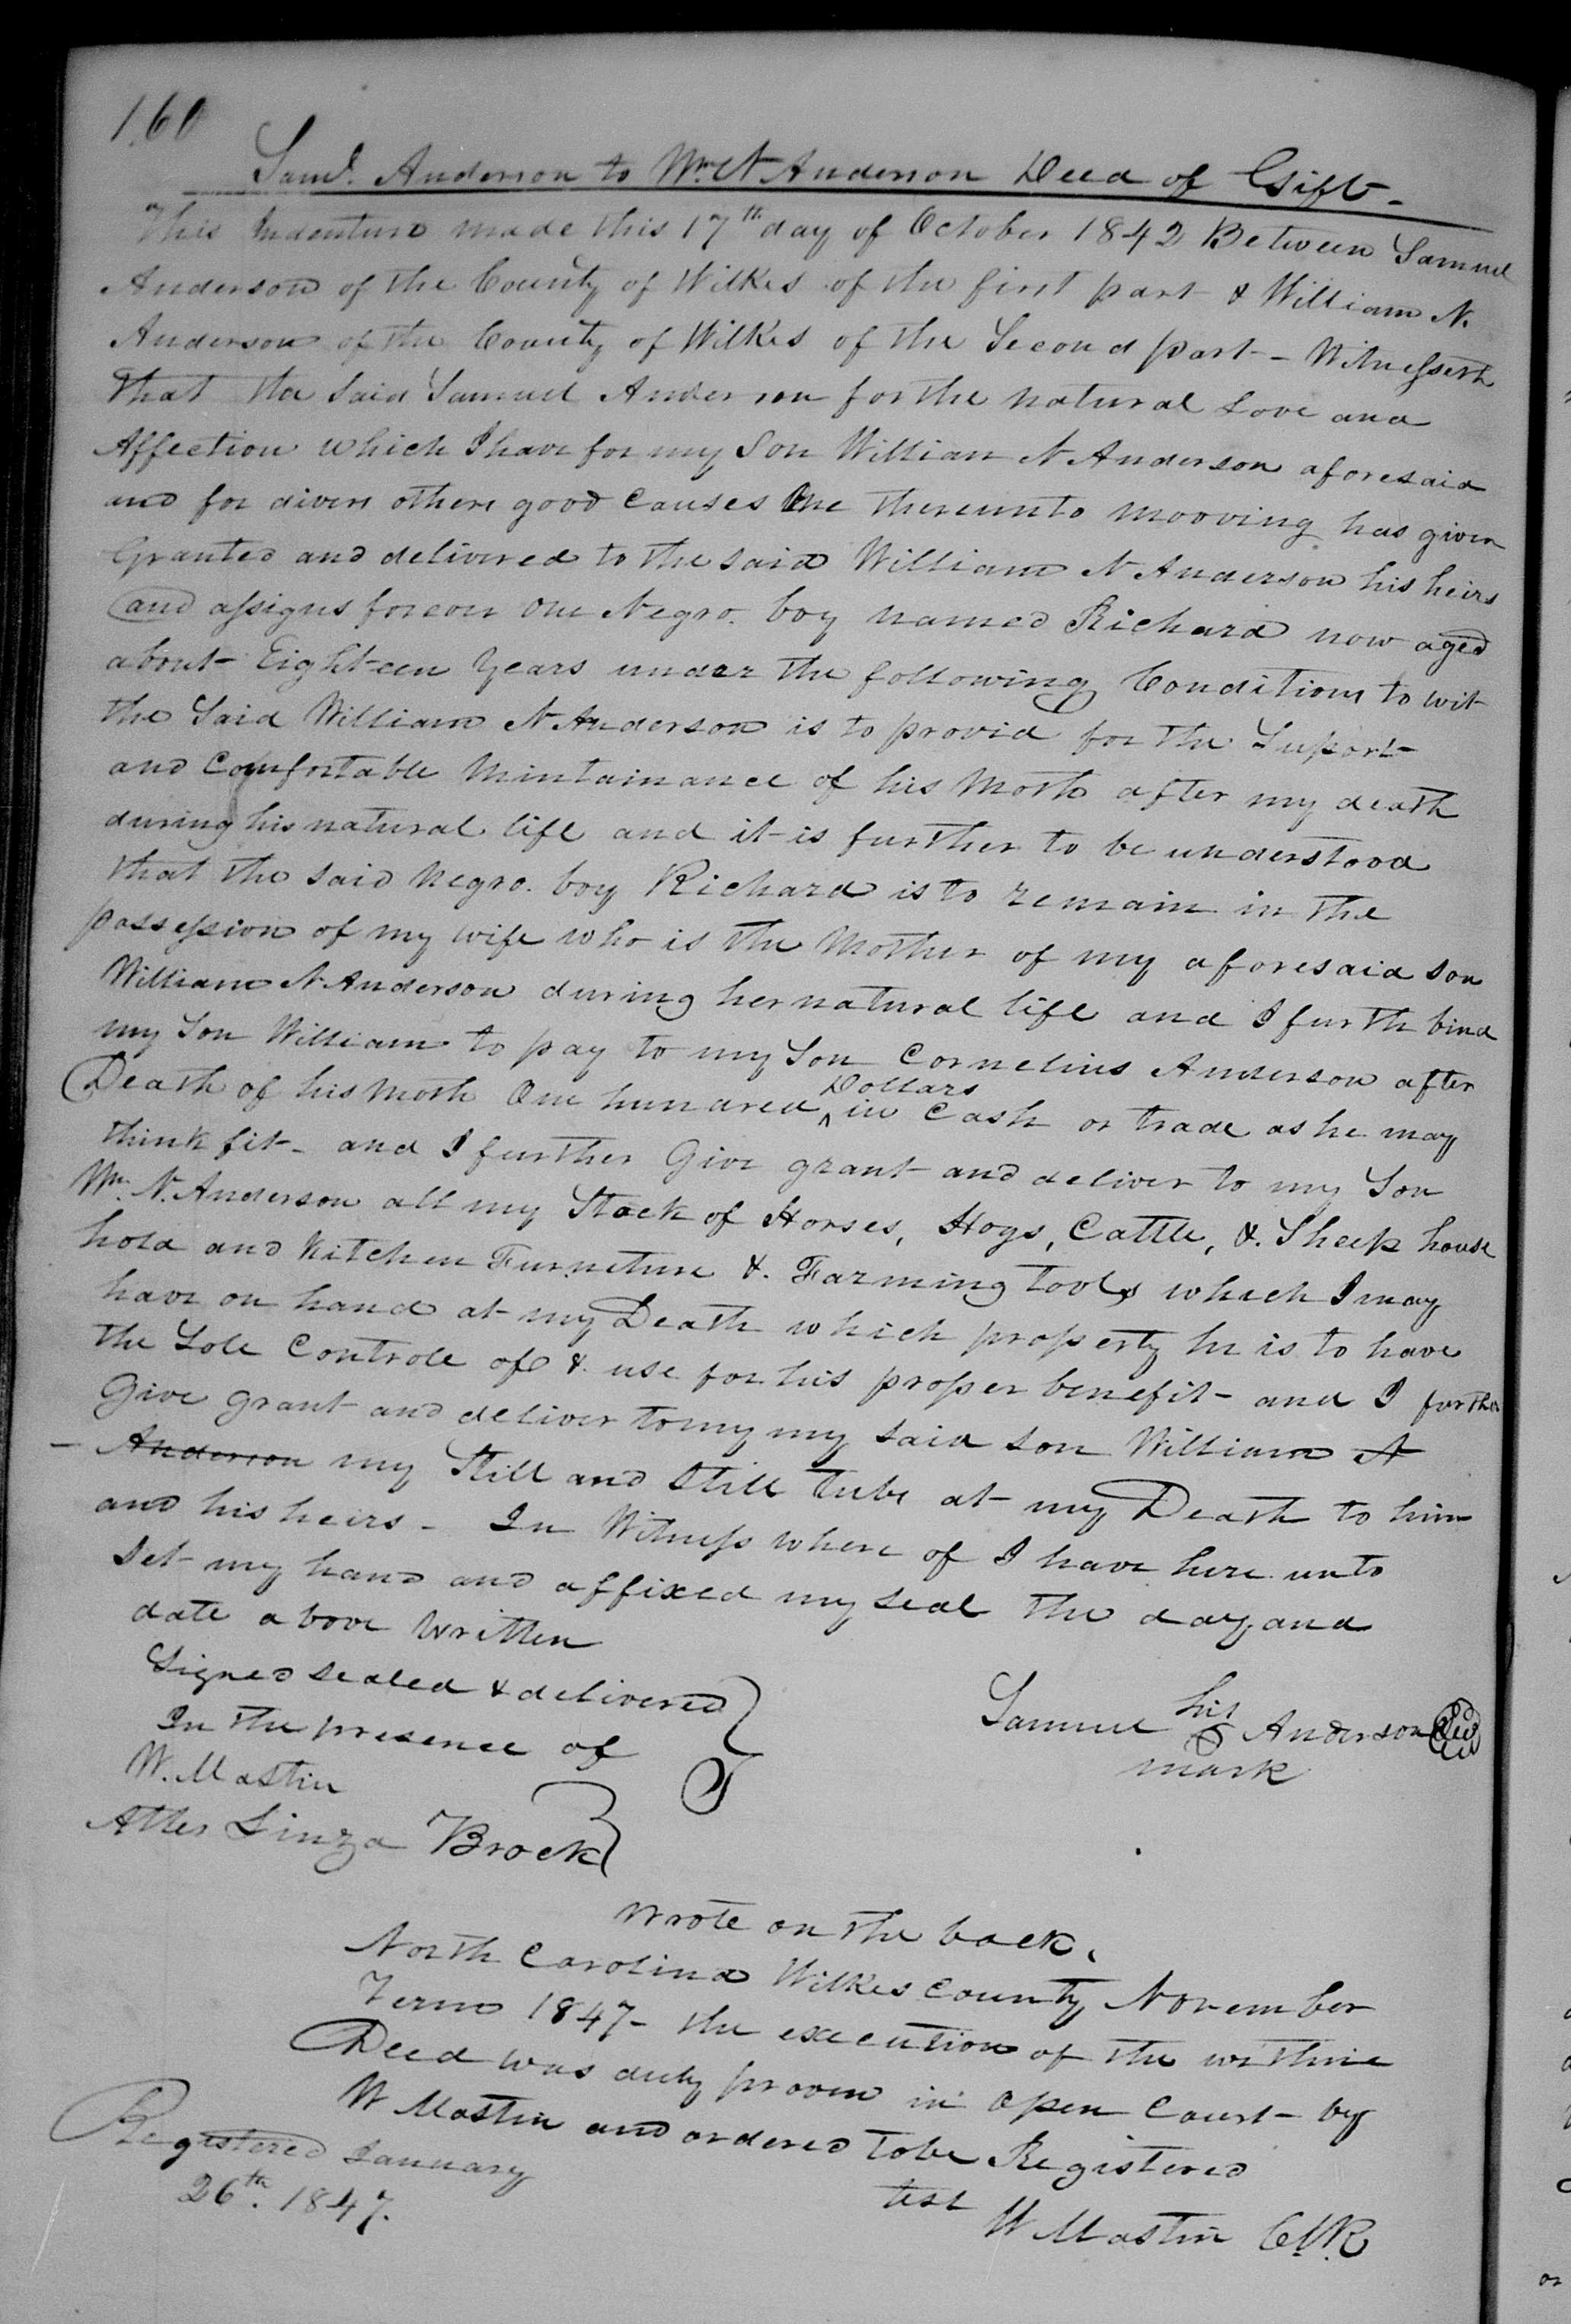 160
Saml. Anderson to Wm. N Anderson Deed of Gift-
This Indenture made this 17th day of October 1842 Between Samuel
Anderson of the County of Wilkes of the first part & William N.
Anderson of the County of Wilkes of the Second part - Witnesseth
that the Said Samuel Anderson for the natural Love and
Affection which I have for my Son William N Anderson aforesaid
and for divers others good Causes me thereunto mooving has given
Granted and delivered to the said William N Anderson his heirs
and assigns forever One Negro. boy named Richard now aged
about Eighteen Years under the following Conditions to wit
the Said William N Anderson is to provid for the Suport
and Comfortable Mintainance of his Moth after my death
during his natural life and it is further to be understood
that the said Negro. boy Richard is to remain in the
possession of my wife who is the Mother of my aforesaid son
William N Anderson during her natural life and I furth bind
my Son William to pay to my Son Cornelius Anderson after
Death of his Moth One hundred ^ Dollars in Cash or trade as he may
think fit - and I further Give grant and deliver to my Son
Wm. N. Anderson all my Stock of Horses, Hogs, Cattle, &. Sheep house
hold and Kitchen Furneture &. Farming tools which I may
have on hand at my Death which property he is to have
the Sole Controle of & use for his proper benefit - and I further
Give grant and deliver to my my said son William N
- Anderson my Still and Still tubs at my Death to him
and his heirs - In Witness where of I have here unto
Set my hand and affixed my seal the day and
date above written
Signed sealed & delivered
In the presence of
Samuel his Anderson
mark
W. Mastin
Attes Linza Brock
Wrote on the back.
North Carolina Wilkes County November
Term 1847 - the execution of the within
Deed was duly proven in open Court - by
W Mastin and ordered to be Registered
test W Mastin Clk
Registered January
26th. 1847.